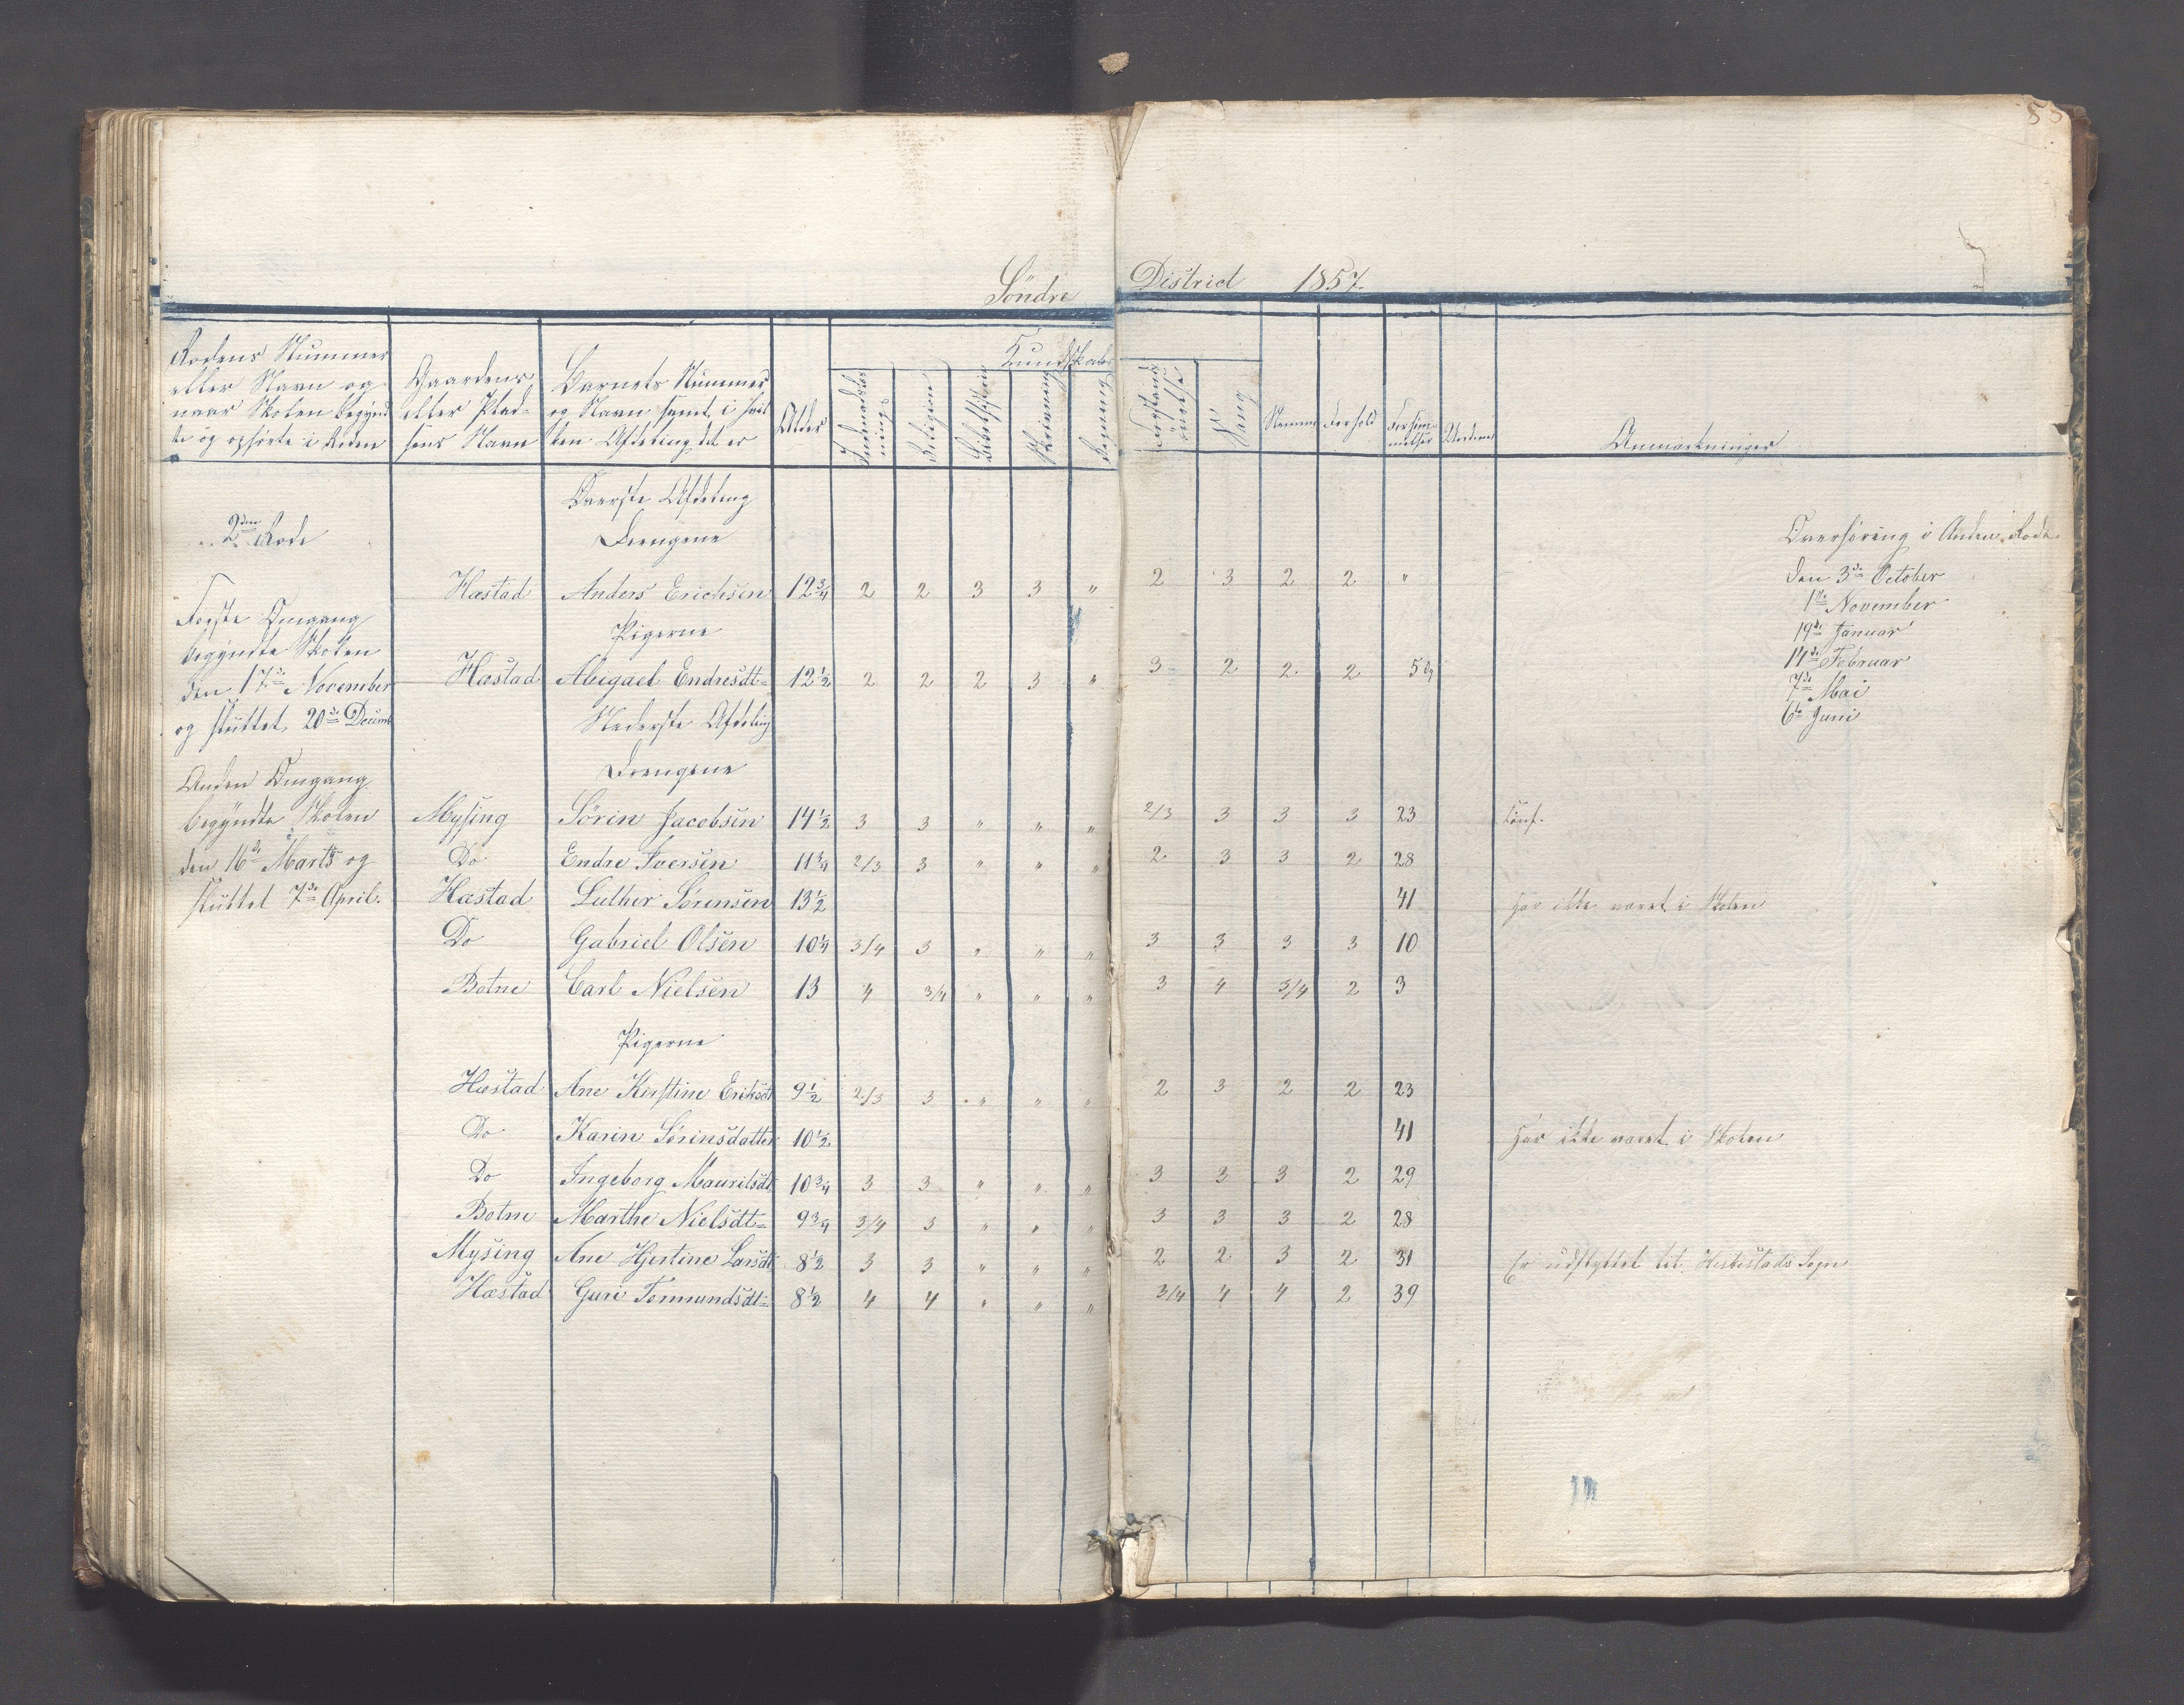 83
Söndre District 1857
Rodens Nummer
eller Navn og
naar Skolen begynd
te og ophörte i Roden
Gaardens
eller Plad-
sens Navn
Barnets Nummer
og Navn samt i hvil
ken Afdeling det er
Alder
Kundskaber
Indenadslæs
ning
Religion
Bibelhistorie
Skrivning
Regning
Forstands
övelse
Sang
Nemme
Forhold
Forsöm-
melser
Anmærkninger
Överste Afdeling
2den Rode
Drengene
Overhöring i Anden Rode
Hæstad Anders Erichsen 12 3/4 2 2 3 3 " 2 3 2 2 "
den 3de October
1ste November
19de Januar
14de Februar
7de Mai
6te Juni
Förste Omgang
begyndte Skolen
den 17de November
og sluttet 20de Decemb
Pigerne
Hæstad Abigael Endresdt- 12 1/2 2 2 2 3 " 3 2 2 2 5
Nederste Afdeling
Drengene
Anden Omgang
begyndte Skolen
den 16de Marts og
sluttet 7de April.
Mysing Sörin Jacobsen 14 1/2 3 3 " " " 2/3 3 3 3 23 Conf.
Do Endre Iversen 11 3/4 2/3 3 " " " 2 3 3 2 28
Hæstad Luther Sörensen 13 1/2 41 har ikke været i Skolen
Do Gabriel Olsen 10 1/4 3/4 3 " " " 3 3 3 3 10
Botne Carl Nielsen 13 4 3/4 " " " 3 4 3/4 2 3
Pigerne
Hæstad Ane Kirstine Eriksdt 9 1/2 2/3 3 " " " 2 3 2 2 23
Do Karin Sörinsdatter 10 1/2 41 har ikke været i Skolen
Do Ingeborg Mauritsdt 10 3/4 3 3 " " " 3 3 3 2 29
Botne Marthe Nielsdt- 9 3/4 3/4 3 " " " 3 3 3 2 28
Mysing Ane Hjertine Larsdt 8 1/2 3 3 " " " 2 2 3 2 31 Er udflyttet til Sogn
Hæstad Guri Tormundsdt- 8 1/2 4 4 " " " 3/4 4 4 2 39